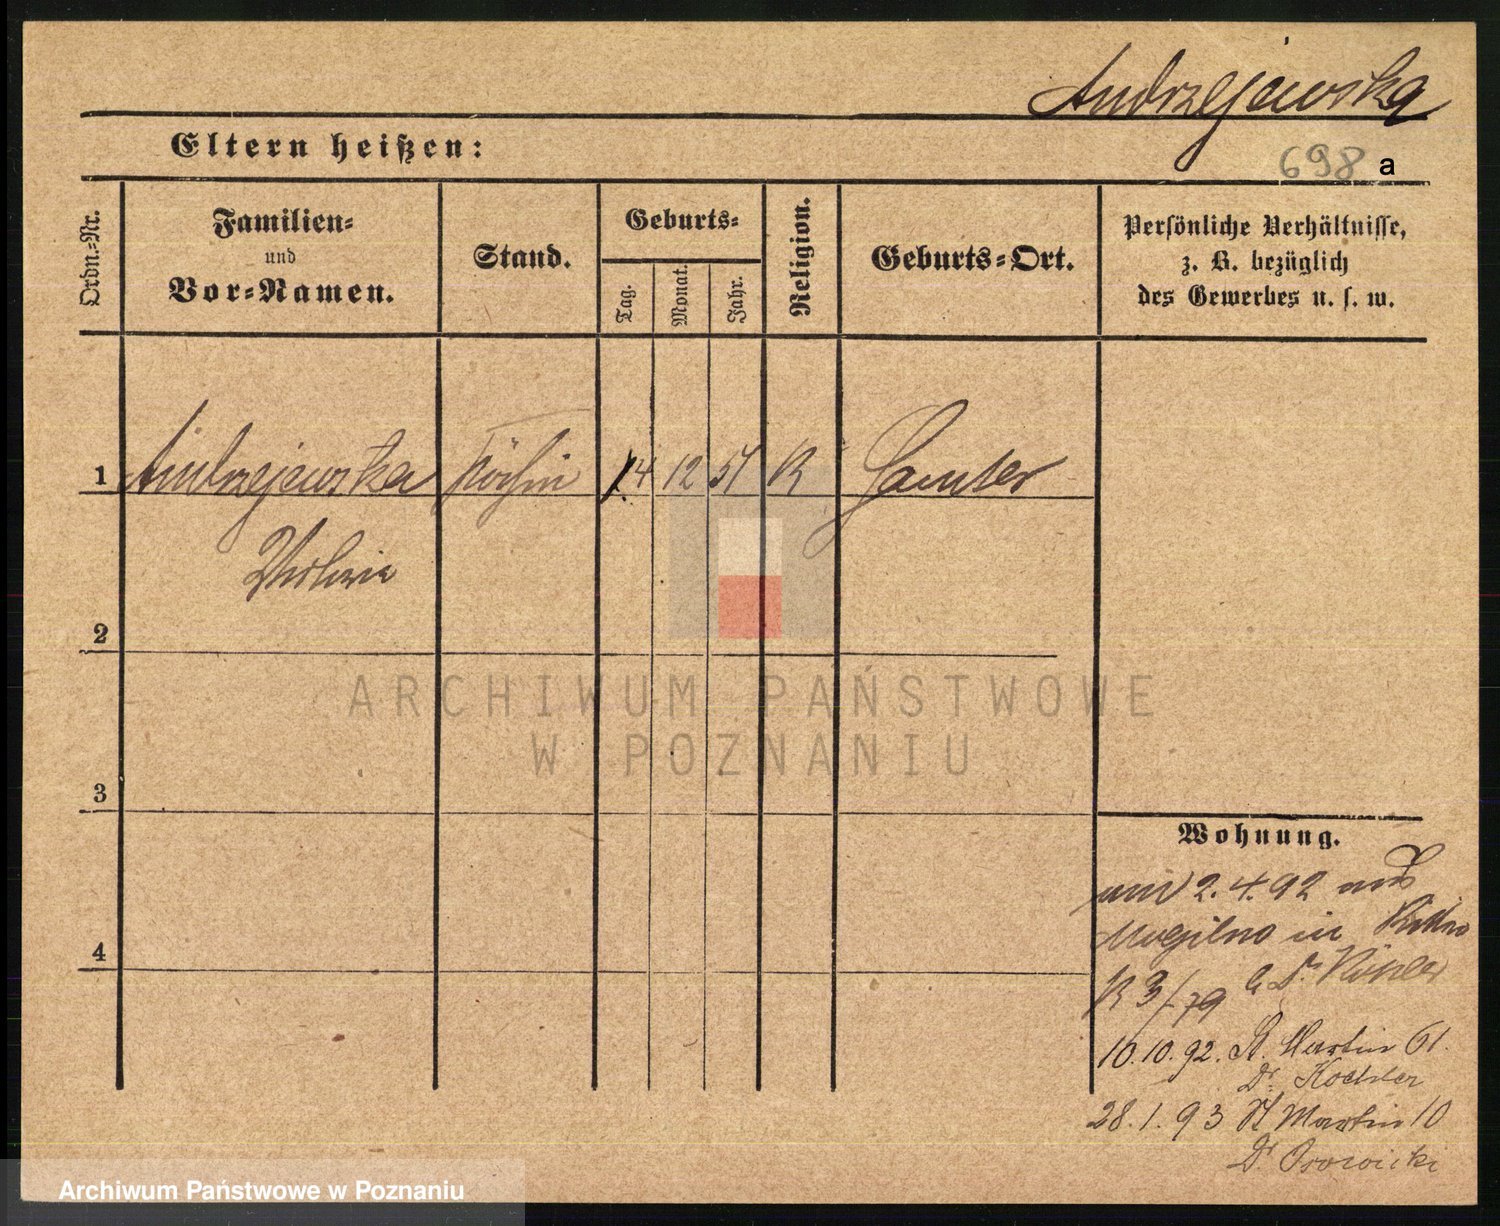 Andrzejewska
698 a
Eltern heißen:
Ordn.-Nr.
Familien-
und
Vor-Namen.
Stand.
Geburts-
Tag.
Monat.
Jahr.
Religion.
Geburts-Ort.
Persönliche Verhältnisse,
z. B. bezüglich
des Gewerbes u. s. w.
1 Andrzejewska Köchin 14 12 57 K Samter
2
3
4
ARCHIWUM PAŃSTWOWE
W POZNANIU
Wohnung.
2.4.92 aus
Mogilno in
K 3/79 b Dr
10.10.92. St. Martin 61.
Dr. Koehler
28.1.93 St Martin 10
Dr
Archiwum Państwowe w Poznaniu